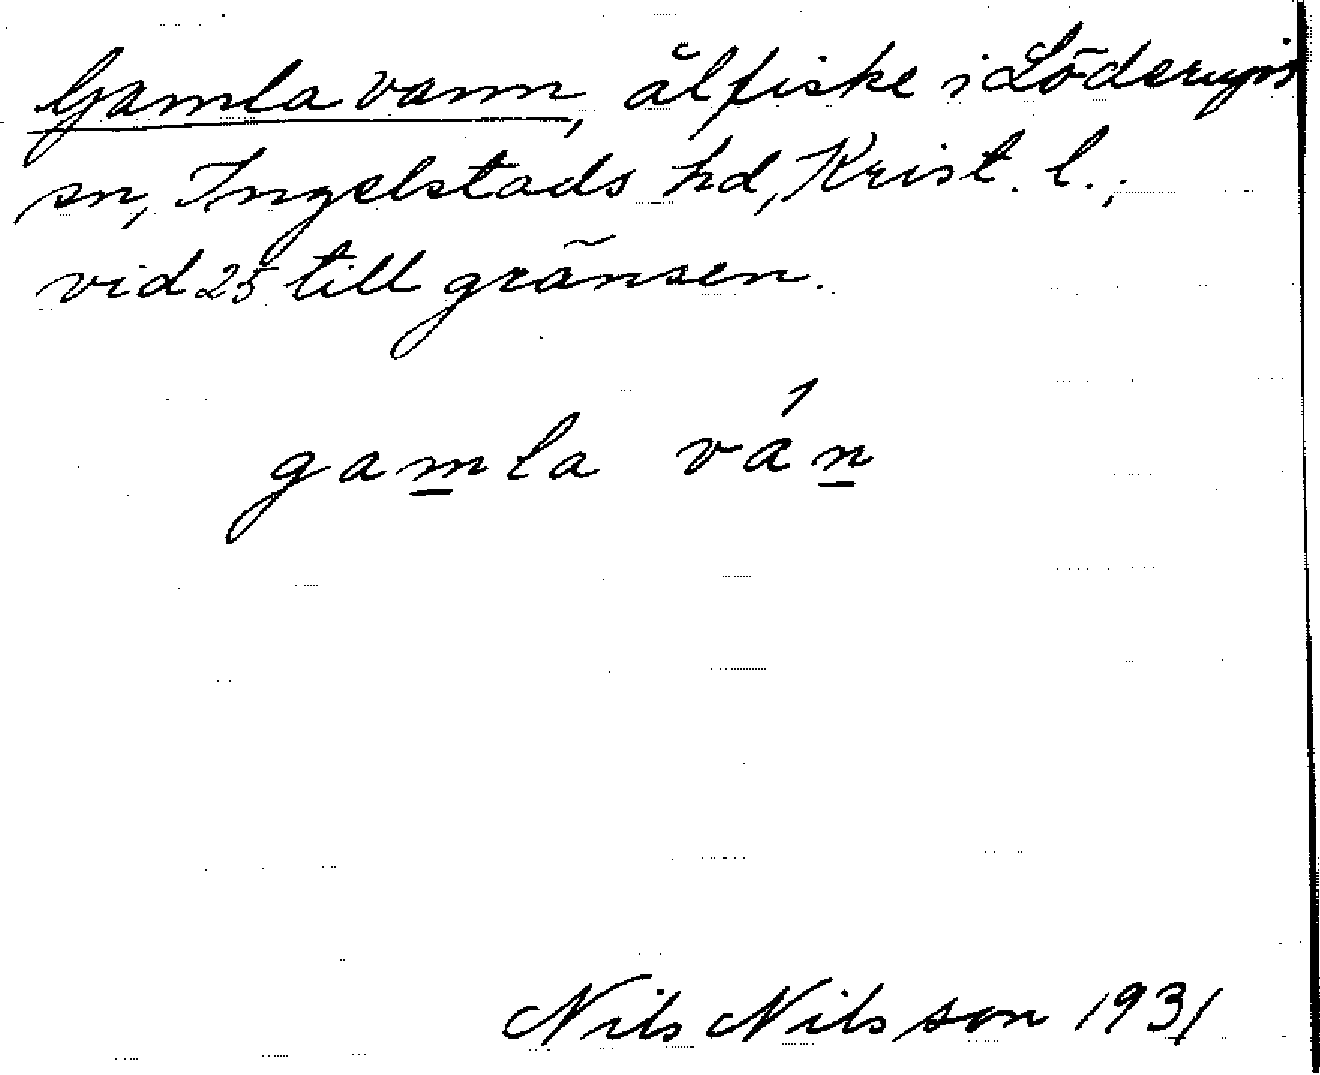 Gamla vann, ålfiske i Löderups
sn, Ingelstads hd, Krist. l.;
vid 25 till gränsen.
gamla ván
Nils Nilsson 1931